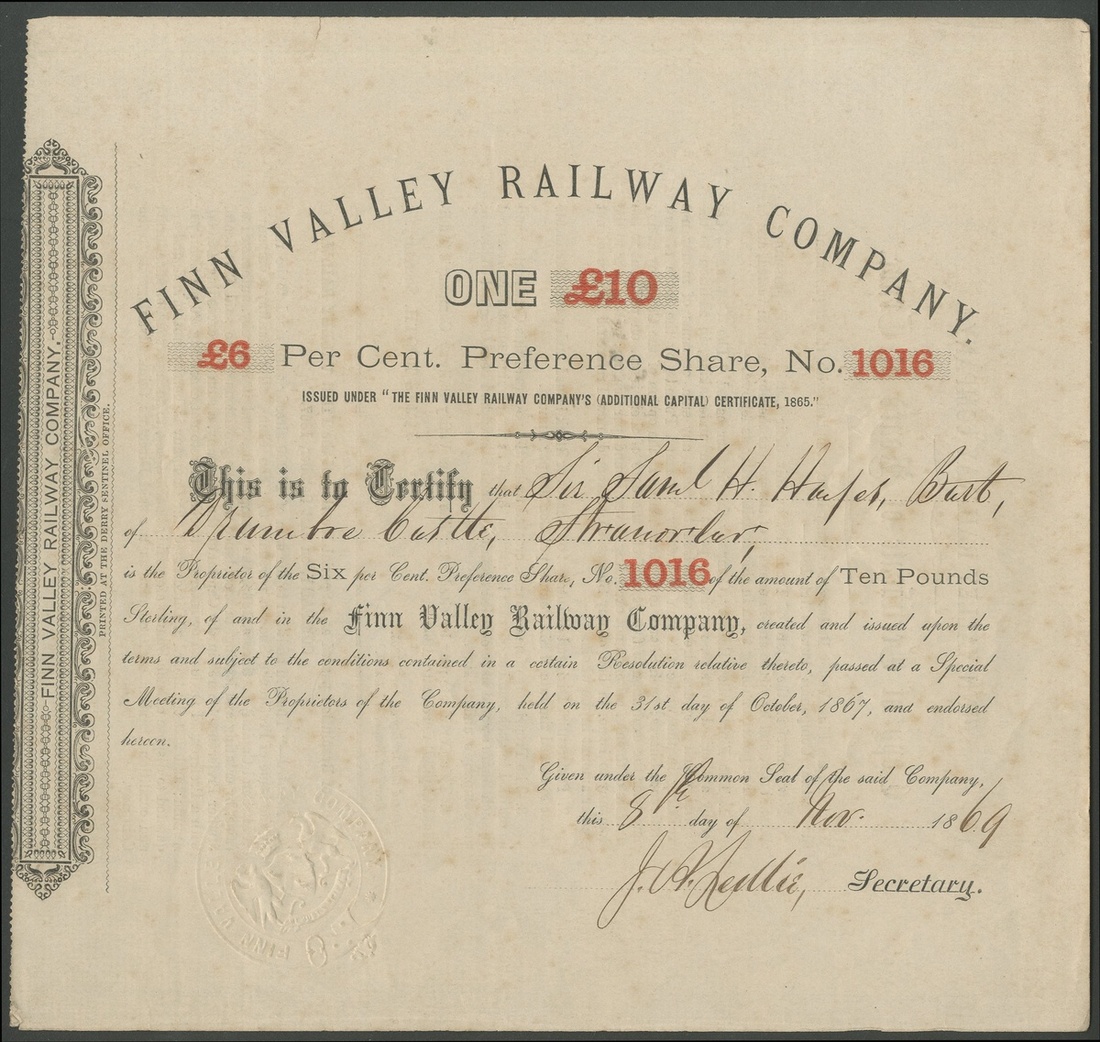 FINN VALLEY RAILWAY COMPANY.
ONE £10
£6 Per Cent. Preference Share, No. 1016
ISSUED UNDER "THE FINN VALLEY RAILWAY COMPANY'S (ADDITIONAL CAPITAL) CERTIFICATE, 1865."
This is to Certify that Sir Saml H. Hayes, Bart,
of Drumboe Castle, Stranorlar,
is the Proprietor of the Six per Cent. Preference Share, No. 1016 of the amount of Ten Pounds
Sterling, of and in the Finn Valley Railway Company, created and issued upon the
terms and subject to the conditions contained in a certain Resolution relative thereto, passed at a Special
Meeting of the Proprietors of the Company, held on the 31st day of October, 1867, and endorsed
hereon.
Given under the Common Seal of the said Company,
this 8th day of Nov. 1869
J. A. Ledlie, Secretary.
FINN VALLEY RAILWAY COMPANY.
PRINTED AT THE DERRY SENTINEL OFFICE.
FINN